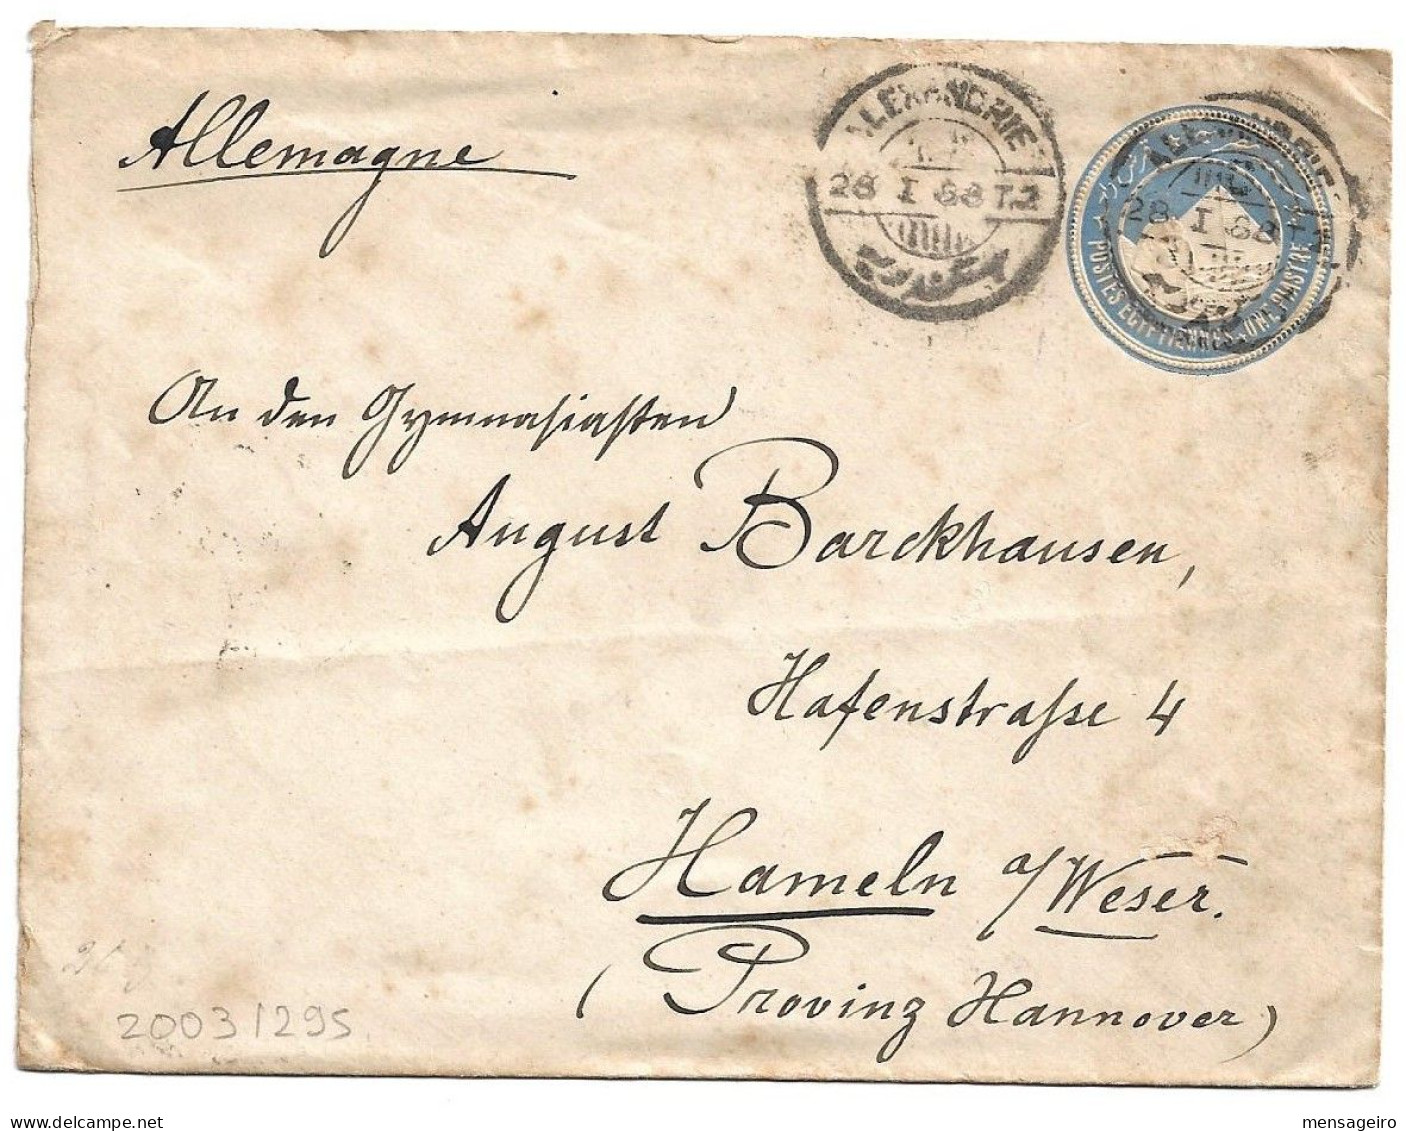 Allemagne
ALEXANDRIE
28 I 88 T.2
اسكندريه
ALEXANDRIE
28 I 88
POSTES EGYPTIENNES - UNE PIASTRE
An den Gymnasiasten
August Barckhausen,
Hafenstraſse 4
Hameln a/Weser.
(Provinz Hannover)
20031295
mensageiro